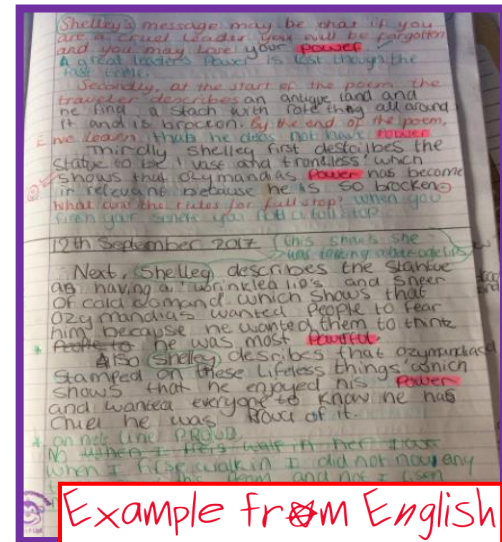 Shelley's message may be that if you
are a cruel leader you will be forgotten
and you may lose your power
A great leader's Power is lost though the
Secondly, at the start of the poem the
traveler describes an antique land and
he find a stach with rote thing all around
it and is brocken. By the end of the poem,
we learn that he does not have power
Thirdly Shelley first describes the
Statue to be 'vast and trunkless' which
shows that Ozymandias Power has become
in relevant because he is so brocken
What are the rules for full stop? when you
finish your you Put a full stop
12th September 2017 (this shows she
was looking at
Next, Shelley describes the Statue
as having a 'wrinkled lip's and sneer
of cold comand which shows that
Ozymandias wanted People to fear
him because he wanted them to think
he was most Powerful
Also Shelley describes that Ozymandias
Stamped on these lifeless things' which
shows that he enjoyed his Power
and wanted everyone to know he had
cruel he was Proud of it.
PROUD
when I first walk in I did not now any
and not I
Example from English